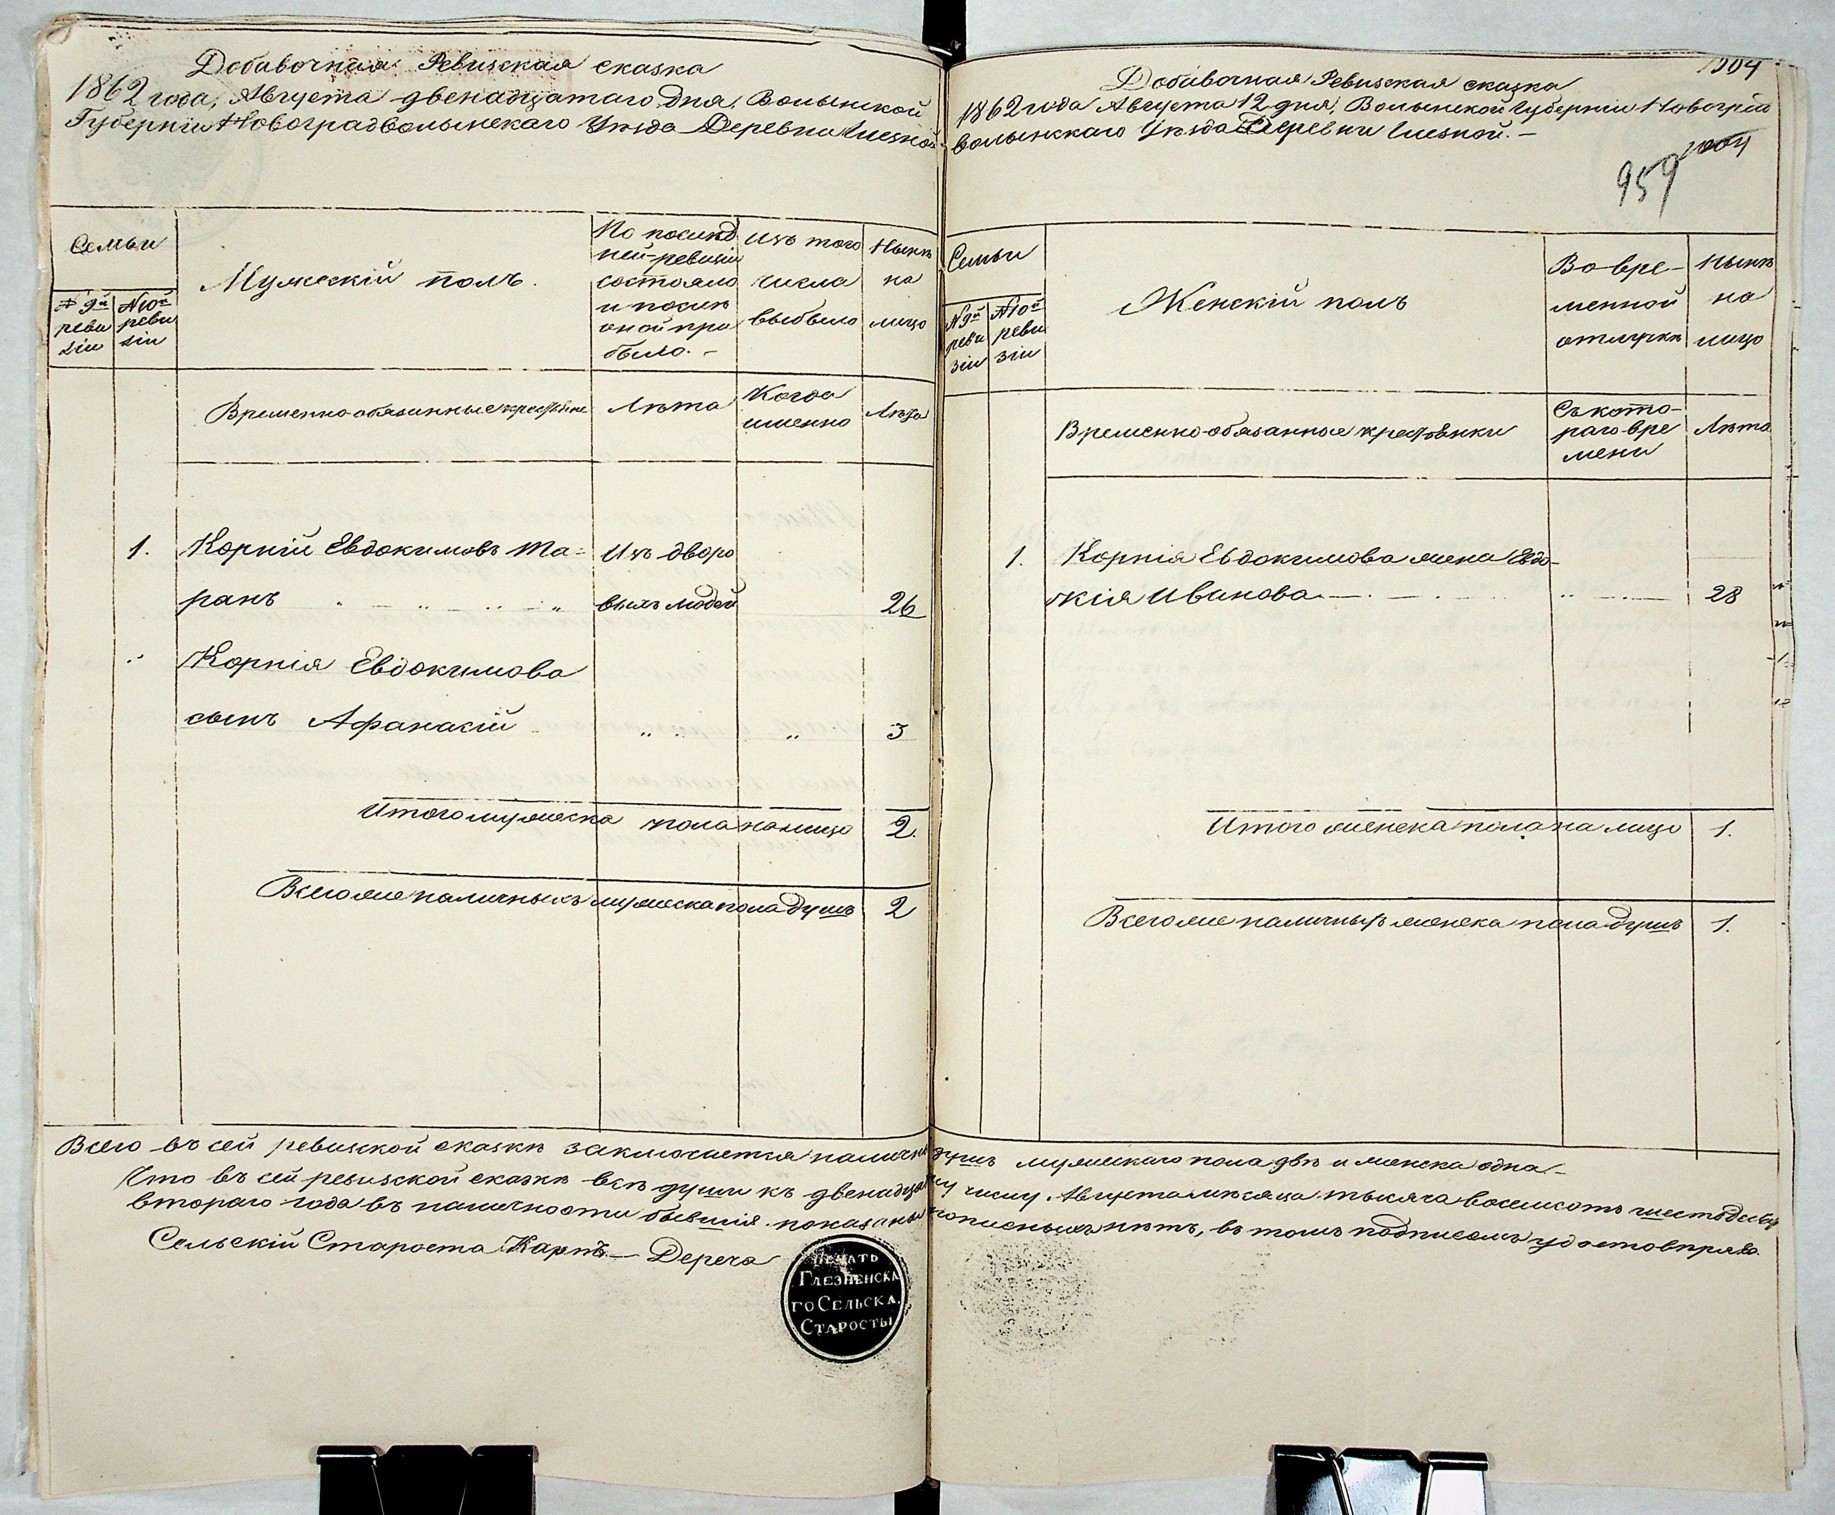 Добавочная Ревизская сказка
1862 года, Августа двенадцатаго дня, Волынской
Губерніи Новоградволынскаго Уѣзда Деревни Глезной
Семьи
№ 9й
реви
зіи
№ 10й
реви
зіи
Мужескій полъ.
По послѣд
ней ревизіи
состояло
и послѣ
оной при
было. –
Изъ того
числа
выбыло
Нынѣ
на
лицо
Временно-обязанные крестьяне
Лѣта
Когда
именно
Лѣта
1. Корній Евдокимовъ Та-
ранъ
Изъ дворо
выхъ людей
26
Корнія Евдокимова
сынъ Афанасій 3
Итого мужеска пола налицо 2.
Всего же наличныхъ мужеска пола душъ 2
Добавочная Ревизская сказка
1862 года Августа 12 дня, Волынской Губерніи Новоград
волынскаго Уѣзда Деревни Глезной. –
1004
1004
959
Семьи
№ 9й
реви
зіи
№ 10й
реви
зіи
Женскій полъ
Во вре-
менной
отлучкѣ
Нынѣ
на
лицо
Временно-обязанные крестьянки
Съ кото-
раго вре
мени
Лѣта
1. Корнія Евдокимова жена Евдо-
кія Иванова 28
Итого женска пола на лицо 1.
Всего же наличныхъ женска пола душъ 1.
Всего въ сей ревизской сказкѣ заключается налични душъ мужескаго пола двѣ и женска одна –
Что въ сей ревизской сказкѣ всѣ души къ двенадца му числу Августа мѣсяца тысяча восемсотъ шестьдесят
втораго года въ наличности бывшія показаны прописныхъ нѣтъ, въ томъ подписомъ удостовѣряю.
Сельскій Староста Карпъ – Дереча
ПЕЧАТЬ
ГЛЕЗНЕНСКА
ГО СЕЛЬСКА.
СТАРОСТЫ